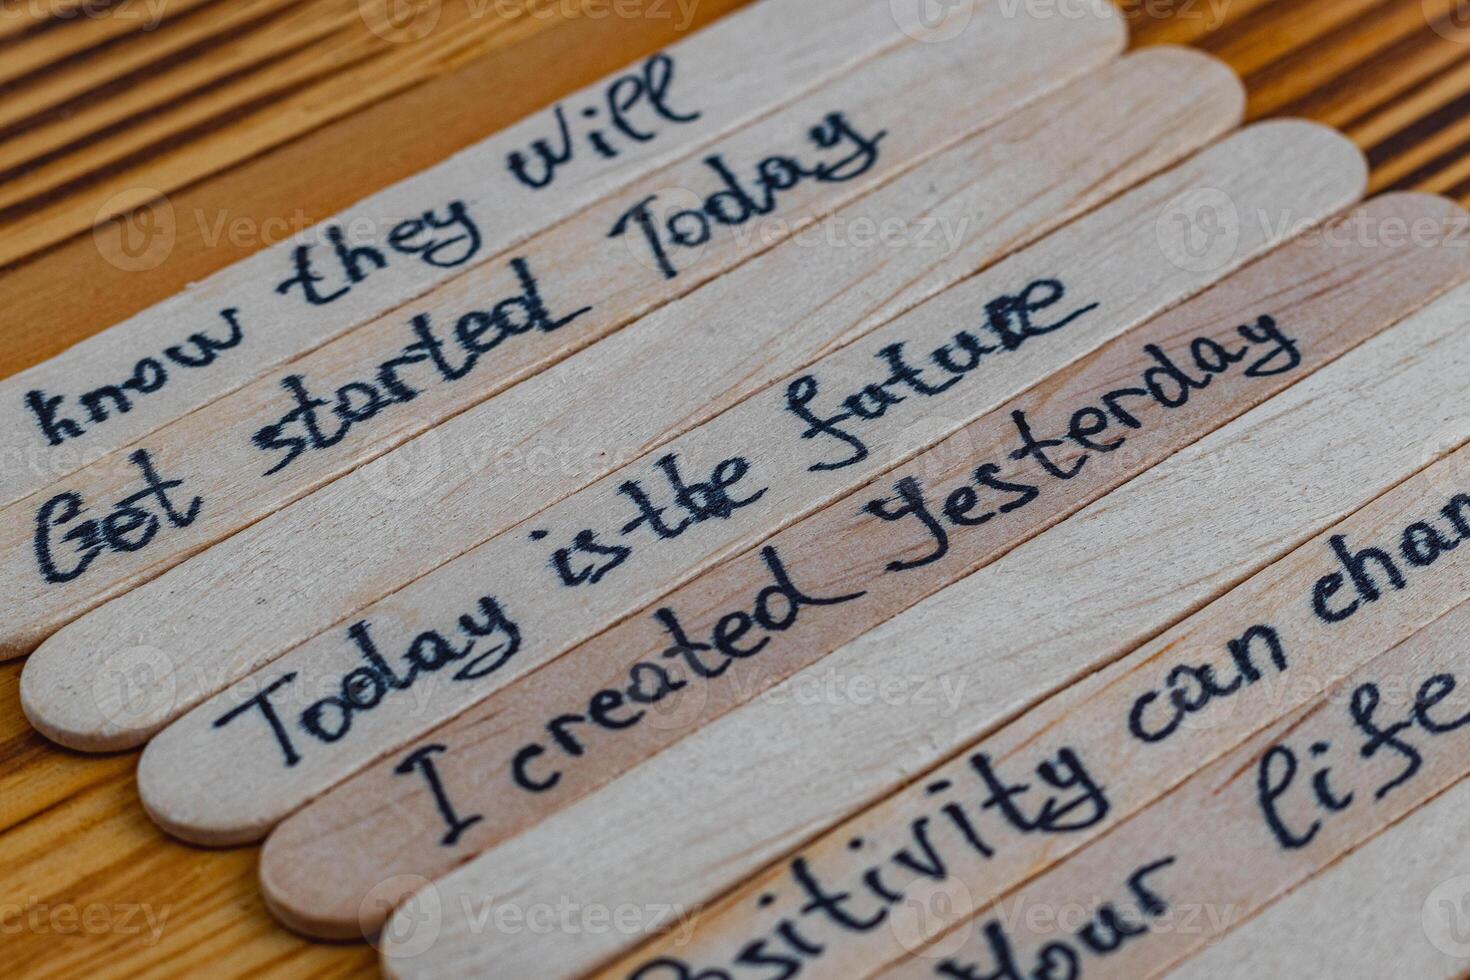 know they will
Get started Today
Today is the future
I created yesterday
Positivity can chan
Your life